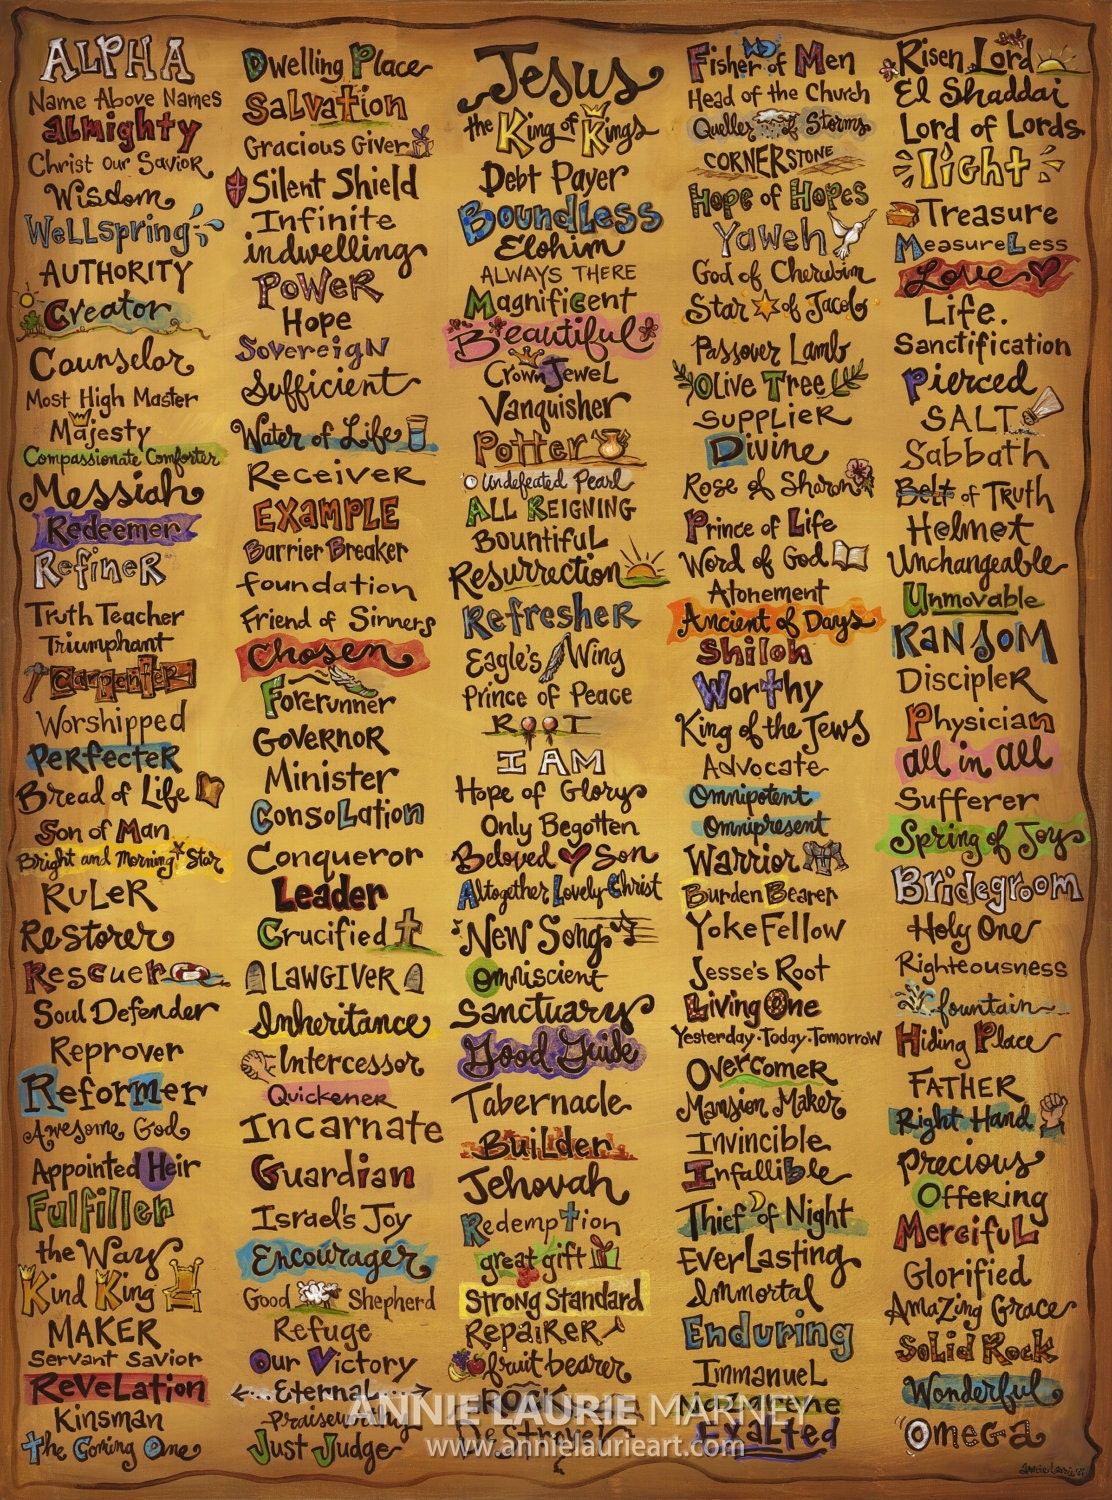 ALPHA
Name Above Names
almighty
Christ our Savior
Wisdom
Wellspring
AUTHORITY
Creator
Counselor
Most High Master
Majesty
Compassionate Comforter
Messiah
Redeemer
Refiner
Truth Teacher
Triumphant
Carpenter
Worshipped
Perfecter
Bread of Life
Son of Man
Bright and Morning Star
RuLeR
Restorer
Rescuer
Soul Defender
Reprover
Reformer
Awesome God
Appointed Heir
Fulfiller
the Way
Kind King
MAKER
Servant Savior
Revelation
Kinsman
the Coming One
Dwelling Place
Salvation
Gracious Giver
Silent Shield
Infinite
indwelling
Power
Hope
Sovereign
Sufficient
Water of Life
Receiver
EXAMPLE
Barrier Breaker
foundation
Friend of Sinners
Chosen
Forerunner
Governor
Minister
Consolation
Conqueror
Leader
Crucified
LAWGIVER
Inheritance
Intercessor
Quickener
Incarnate
Guardian
Israel's Joy
Encourager
Good Shepherd
Refuge
Our Victory
Eternal
Praiseworthy
Just Judge
Jesus
the King of Kings
Debt Payer
Boundless
Elohim
ALWAYS THERE
Magnificent
Beautiful
Crown Jewel
Vanquisher
Potter
Undefeated Pearl
ALL REIGNING
Bountiful
Resurrection
Refresher
Eagle's Wing
Prince of Peace
ROOT
I AM
Hope of Glory
Only Begotten
Beloved Son
Altogether Lovely Christ
New Song
Omniscient
Sanctuary
Good Guide
Tabernacle
Builder
Jehovah
Redemption
great gift
Strong Standard
Repairer
fruit bearer
ROCK
Destroyer
Fisher of Men
Head of the Church
Queller of Storms
CORNERSTONE
Hope of Hopes
Yaweh
God of Cherubim
Star of Jacob
Passover Lamb
Olive Tree
Supplier
Divine
Rose of Sharon
Prince of Life
Word of God
Atonement
Ancient of Days
Shiloh
Worthy
King of the Jews
Advocate
Omnipotent
Omnipresent
Warrior
Burden Bearer
Yoke Fellow
Jesse's Root
Living One
Yesterday · Today · Tomorrow
Overcomer
Mansion Maker
Invincible
Infallible
Thief of Night
Everlasting
Immortal
Enduring
Immanuel
Nazarene
Exalted
Risen Lord
El Shaddai
Lord of Lords
light
Treasure
Measureless
Love
Life.
Sanctification
Pierced
SALT
Sabbath
Belt of Truth
Helmet
Unchangeable
Unmovable
RANSOM
Discipler
Physician
all in all
Sufferer
Spring of Joy
Bridegroom
Holy One
Righteousness
fountain
Hiding Place
FATHER
Right Hand
Precious
Offering
Merciful
Glorified
Amazing Grace
Solid Rock
Wonderful
Omega
ANNIE LAURIE MARNEY
www.annielaurieart.com